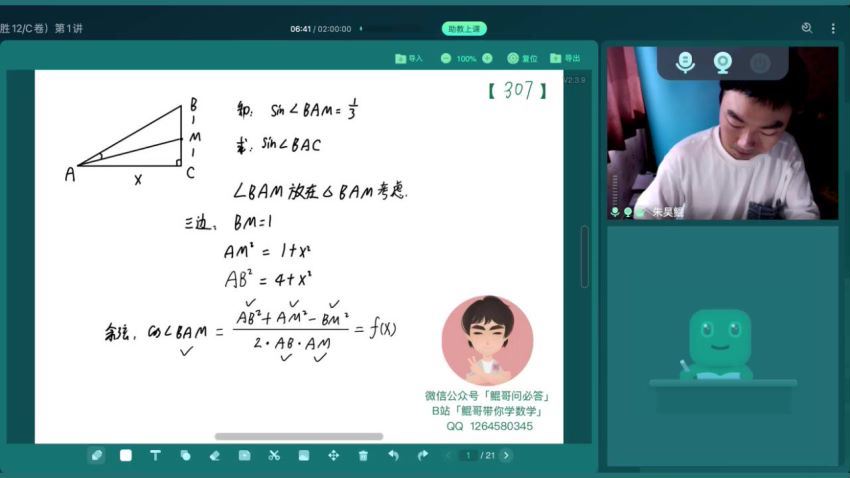 胜12/C卷）第1讲
06:41 / 02:00:00
助教上课
导入
100%
复位
导出
V2.3.9
【307】
B
1
M
1
A
x
C
知: sin∠BAM=1/3
求: sin∠BAC
∠BAM 放在△BAM考虑.
三边: BM=1
AM²=1+x²
AB²=4+x²
余弦: cos∠BAM = (AB²+AM²-BM²)/(2·AB·AM) = f(x)
微信公众号「鲲哥问必答」
B站「鲲哥带你学数学」
QQ 1264580345
朱昊鲲
T
1 / 21